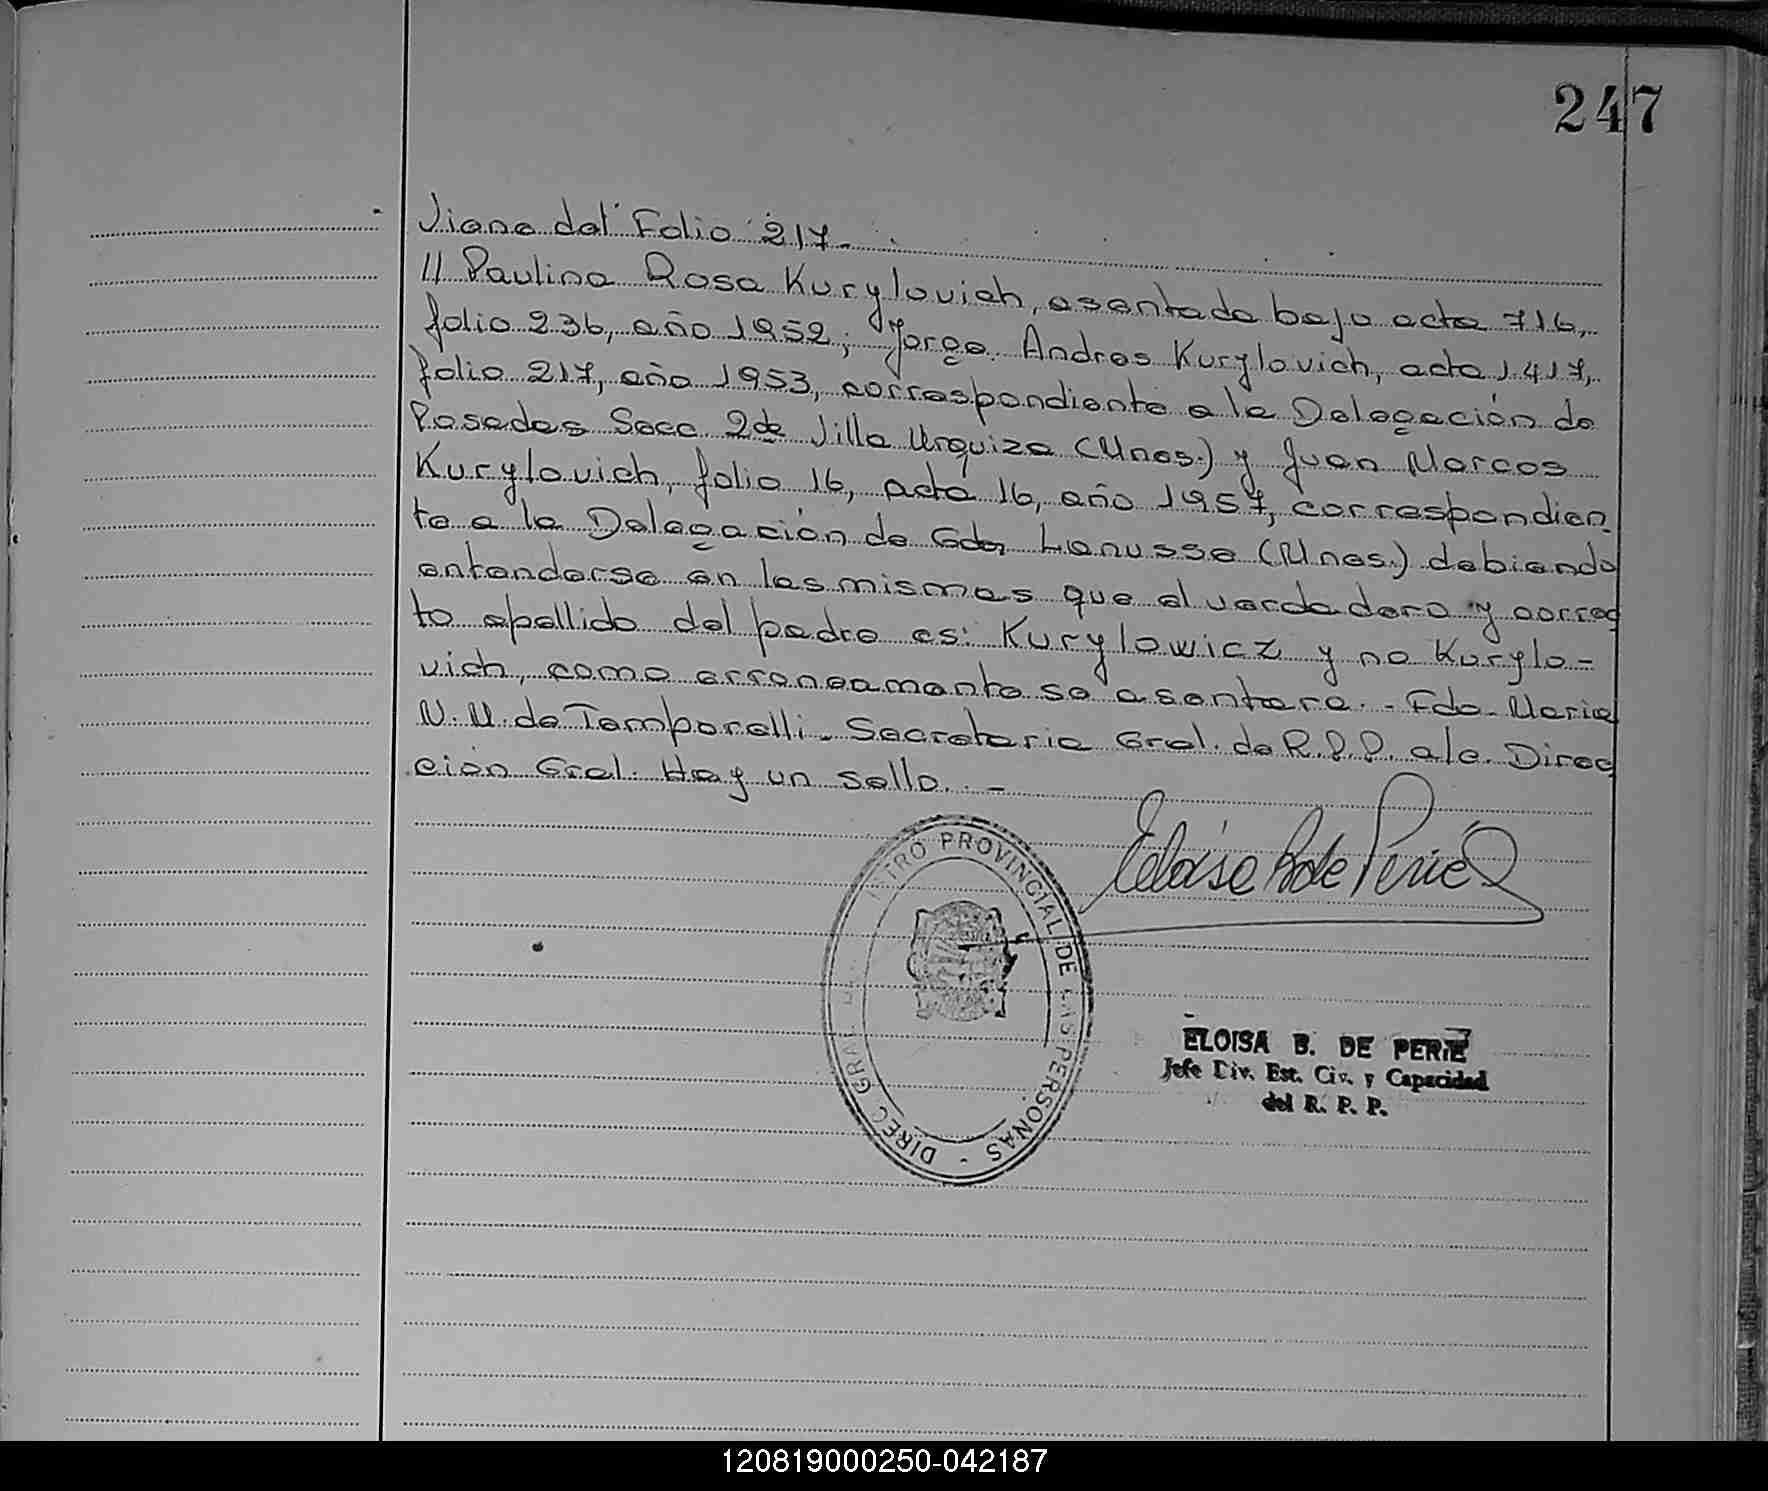 247
Viene del Folio 217.-
// Paulina Rosa Kurylovich, asentada bajo acta 716,
folio 236, año 1952; Jorge Andres Kurylovich, acta 1.417,
folio 217, año 1953, correspondiente a la Delegación de
Posadas Secc 2da Villa Urquiza (Mnes.) y Juan Marcos
Kurylovich, folio 16, acta 16, año 1957, correspondien
te a la Delegación de Gdor Lanusse (Mnes.) debiendo
entenderse en las mismas que el verdadero y correc
to apellido del padre es: Kurylowicz y no Kurylo-
vich, como erroneamente se asentara.- Fdo. Maria
N. M. de Temporelli. Secretaria Gral. de R.P.P. a/c. Direc
ción Gral. Hay un sello. . -
Eloisa B de Perié
DIREC GRAL. PROVINCIAL DE LAS PERSONAS -
ELOISA B. DE PERIE
Jefe Div. Est. Civ. y Capacidad
del R. P. P.
120819000250-042187